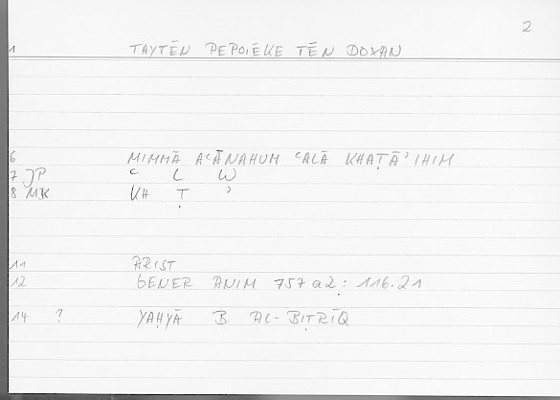 2
1 TAYTĒN PEPOIĒKE TĒN DOXAN
6 MIMMĀ AʿĀNAHUM ʿALĀ KHAṬĀʾIHIM
7 JP ʿ L W
8 MK KH Ṭ ʾ
11 ARIST
12 GENER ANIM 757a2: 116.21
14 ? YAḤYĀ B. AL-BIṬRĪQ